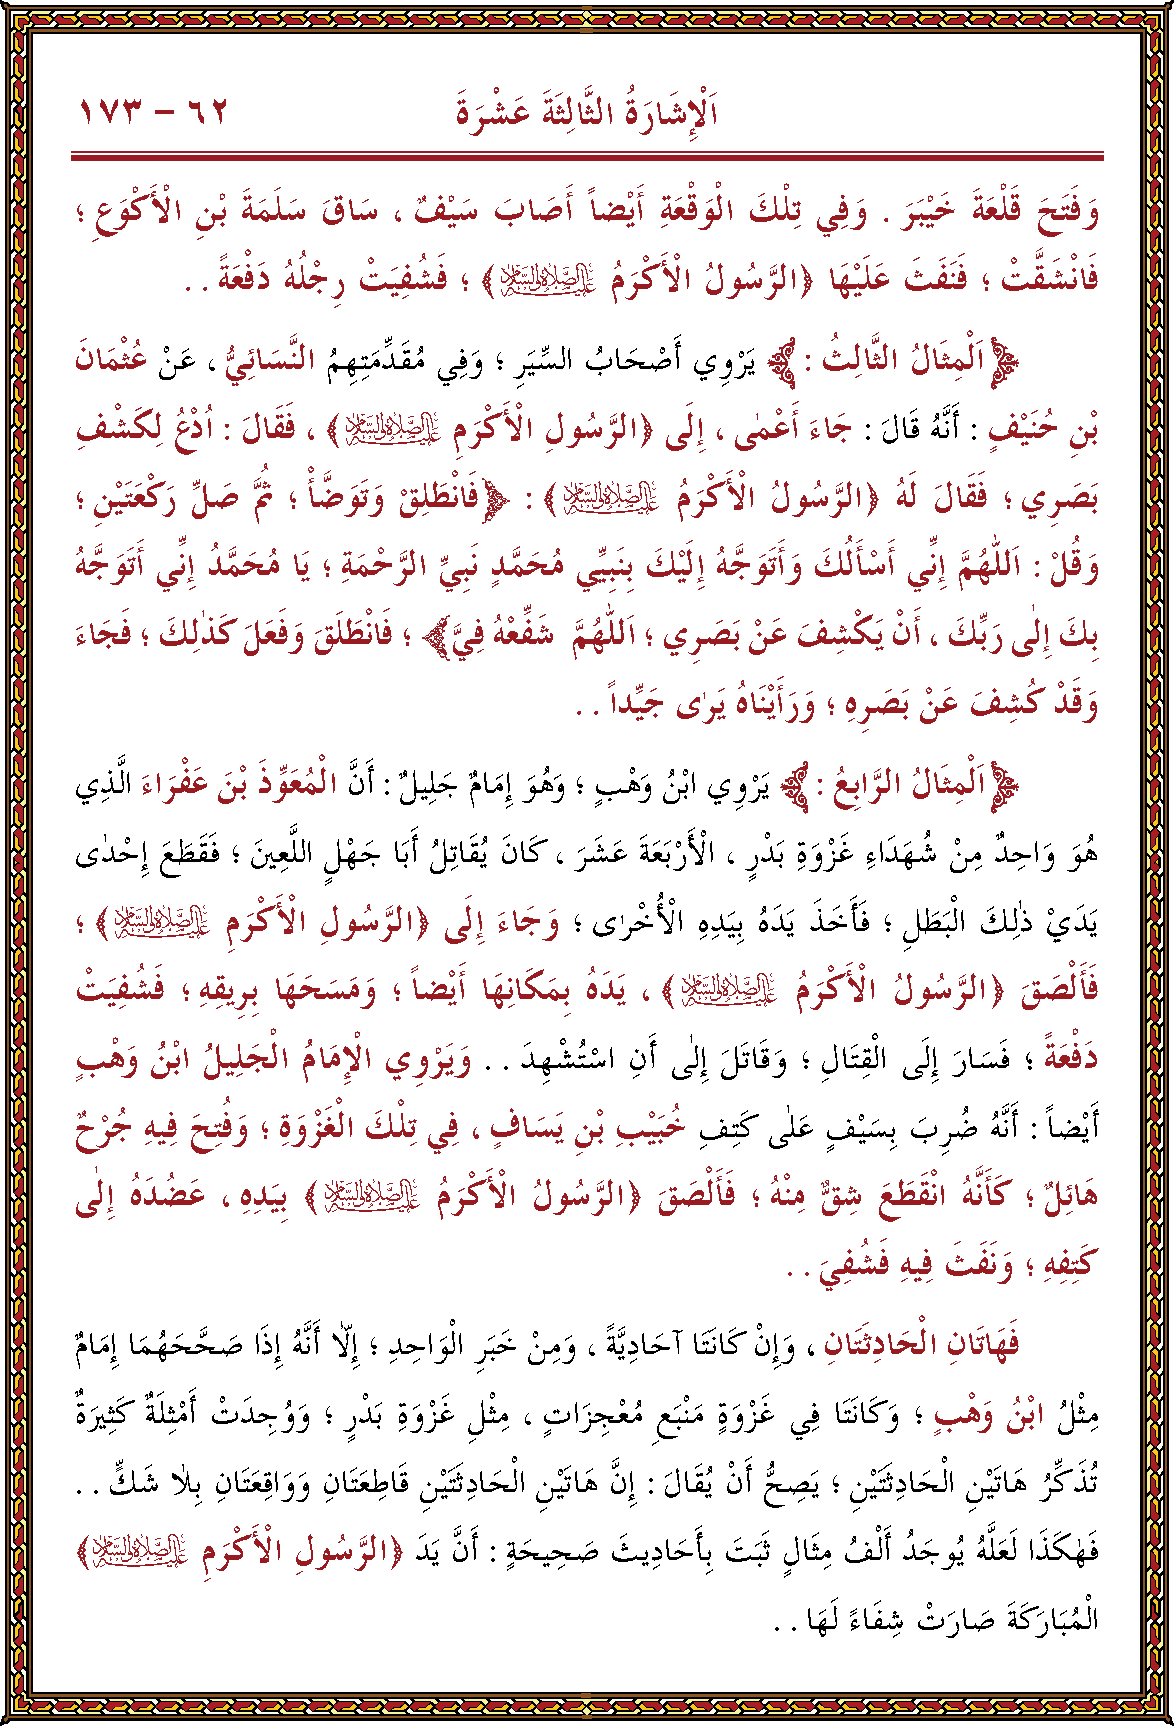 اَلْإِشَارَةُ الثَّالِثَةَ عَشْرَةَ ٦٢ - ١٧٣
وَفَتَحَ قَلْعَةَ خَيْبَرَ . وَفِي تِلْكَ الْوَقْعَةِ أَيْضاً أَصَابَ سَيْفٌ ، سَاقَ سَلَمَةَ بْنِ الْأَكْوَعِ ؛
فَانْشَقَّتْ ؛ فَنَفَثَ عَلَيْهَا ﴿الرَّسُولُ الْأَكْرَمُ عَلَيْهِ الصَّلَاةُ وَالسَّلَامُ﴾ ؛ فَشُفِيَتْ رِجْلُهُ دَفْعَةً . .
﴿اَلْمِثَالُ الثَّالِثُ :﴾ يَرْوِي أَصْحَابُ السِّيَرِ ؛ وَفِي مُقَدِّمَتِهِمُ النَّسَائِيُّ ، عَنْ عُثْمَانَ
بْنِ حُنَيْفٍ : أَنَّهُ قَالَ : جَاءَ أَعْمٰى ، إِلَى ﴿الرَّسُولِ الْأَكْرَمِ عَلَيْهِ الصَّلَاةُ وَالسَّلَامُ﴾ ، فَقَالَ : اُدْعُ لِكَشْفِ
بَصَرِي ؛ فَقَالَ لَهُ ﴿الرَّسُولُ الْأَكْرَمُ عَلَيْهِ الصَّلَاةُ وَالسَّلَامُ﴾ : ﴿فَانْطَلِقْ وَتَوَضَّأْ ؛ ثُمَّ صَلِّ رَكْعَتَيْنِ ؛
وَقُلْ : اَللّٰهُمَّ إِنِّي أَسْأَلُكَ وَأَتَوَجَّهُ إِلَيْكَ بِنَبِيِّي مُحَمَّدٍ نَبِيِّ الرَّحْمَةِ ؛ يَا مُحَمَّدُ إِنِّي أَتَوَجَّهُ
بِكَ إِلٰى رَبِّكَ ، أَنْ يَكْشِفَ عَنْ بَصَرِي ؛ اَللّٰهُمَّ شَفِّعْهُ فِيَّ﴾ ؛ فَانْطَلَقَ وَفَعَلَ كَذٰلِكَ ؛ فَجَاءَ
وَقَدْ كُشِفَ عَنْ بَصَرِهِ ؛ وَرَأَيْنَاهُ يَرٰى جَيِّداً . .
﴿اَلْمِثَالُ الرَّابِعُ :﴾ يَرْوِي ابْنُ وَهْبٍ ؛ وَهُوَ إِمَامٌ جَلِيلٌ : أَنَّ الْمُعَوِّذَ بْنَ عَفْرَاءَ الَّذِي
هُوَ وَاحِدٌ مِنْ شُهَدَاءِ غَزْوَةِ بَدْرٍ ، الْأَرْبَعَةَ عَشَرَ ، كَانَ يُقَاتِلُ أَبَا جَهْلٍ اللَّعِينَ ؛ فَقَطَعَ إِحْدٰى
يَدَيْ ذٰلِكَ الْبَطَلِ ؛ فَأَخَذَ يَدَهُ بِيَدِهِ الْأُخْرٰى ؛ وَجَاءَ إِلَى ﴿الرَّسُولِ الْأَكْرَمِ عَلَيْهِ الصَّلَاةُ وَالسَّلَامُ﴾ ؛
فَأَلْصَقَ ﴿الرَّسُولُ الْأَكْرَمُ عَلَيْهِ الصَّلَاةُ وَالسَّلَامُ﴾ ، يَدَهُ بِمَكَانِهَا أَيْضاً ؛ وَمَسَحَهَا بِرِيقِهِ ؛ فَشُفِيَتْ
دَفْعَةً ؛ فَسَارَ إِلَى الْقِتَالِ ؛ وَقَاتَلَ إِلٰى أَنِ اسْتُشْهِدَ . . وَيَرْوِي الْإِمَامُ الْجَلِيلُ ابْنُ وَهْبٍ
أَيْضاً : أَنَّهُ ضُرِبَ بِسَيْفٍ عَلٰى كَتِفِ خُبَيْبِ بْنِ يَسَافٍ ، فِي تِلْكَ الْغَزْوَةِ ؛ وَفُتِحَ فِيهِ جُرْحٌ
هَائِلٌ ؛ كَأَنَّهُ انْقَطَعَ شِقٌّ مِنْهُ ؛ فَأَلْصَقَ ﴿الرَّسُولُ الْأَكْرَمُ عَلَيْهِ الصَّلَاةُ وَالسَّلَامُ﴾ بِيَدِهِ ، عَضُدَهُ إِلٰى
كَتِفِهِ ؛ وَنَفَثَ فِيهِ فَشُفِيَ . .
فَهَاتَانِ الْحَادِثَتَانِ ، وَإِنْ كَانَتَا آحَادِيَّةً ، وَمِنْ خَبَرِ الْوَاحِدِ ؛ إِلَّا أَنَّهُ إِذَا صَحَّحَهُمَا إِمَامٌ
مِثْلُ ابْنُ وَهْبٍ ؛ وَكَانَتَا فِي غَزْوَةٍ مَنْبَعِ مُعْجِزَاتٍ ، مِثْلِ غَزْوَةِ بَدْرٍ ؛ وَوُجِدَتْ أَمْثِلَةٌ كَثِيرَةٌ
تُذَكِّرُ هَاتَيْنِ الْحَادِثَتَيْنِ ؛ يَصِحُّ أَنْ يُقَالَ : إِنَّ هَاتَيْنِ الْحَادِثَتَيْنِ قَاطِعَتَانِ وَوَاقِعَتَانِ بِلَا شَكٍّ . .
فَهٰكَذَا لَعَلَّهُ يُوجَدُ أَلْفُ مِثَالٍ ثَبَتَ بِأَحَادِيثَ صَحِيحَةٍ : أَنَّ يَدَ ﴿الرَّسُولِ الْأَكْرَمِ عَلَيْهِ الصَّلَاةُ وَالسَّلَامُ﴾
الْمُبَارَكَةَ صَارَتْ شِفَاءً لَهَا . .